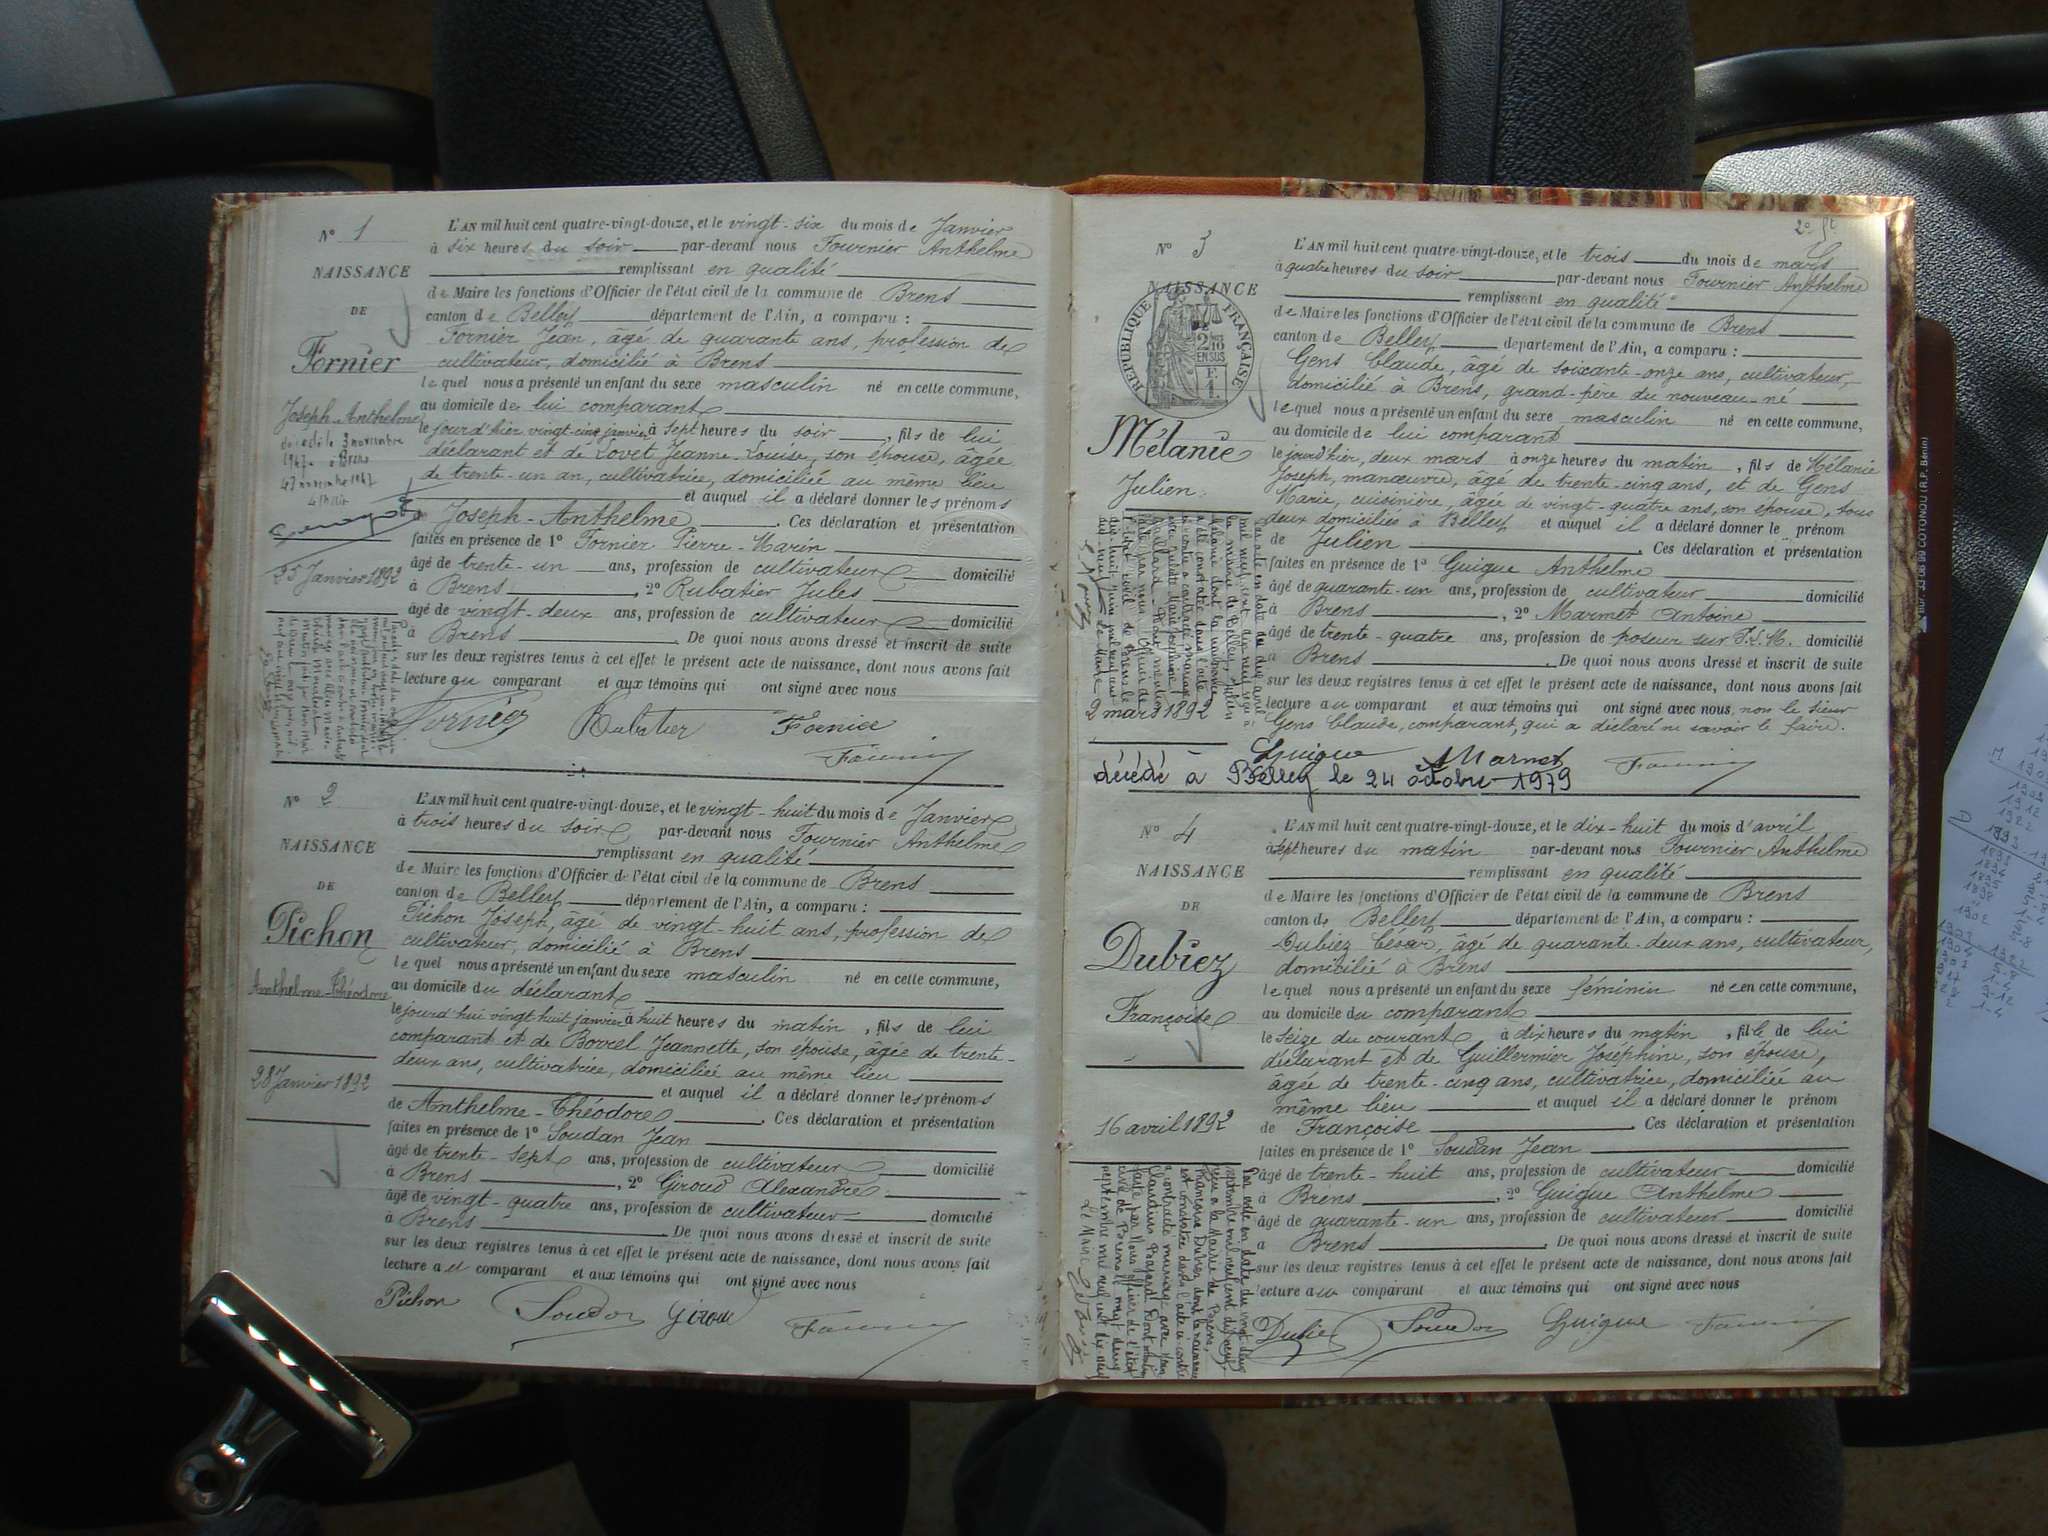 N° 1
NAISSANCE
DE
Fornier
Joseph-Anthelme
décédé le 3 novembre
1947 à Brens
25 Janvier 1892
L'AN mil huit cent quatre-vingt-douze, et le vingt-six du mois de Janvier
à six heures du soir par-devant nous Fournier Anthelme
remplissant en qualité
de Maire les fonctions d'Officier de l'état civil de la commune de Brens
canton de Belley département de l'Ain, a comparu :
Fornier Jean, âgé de quarante ans, profession de
cultivateur, domicilié à Brens
lequel nous a présenté un enfant du sexe masculin né en cette commune,
au domicile de lui comparant
le jourd'hier vingt-cinq janvier à sept heures du soir, fils de lui
déclarant et de Lovet Jeanne-Louise, son épouse, âgée
de trente-un an, cultivatrice, domiciliée au même lieu
et auquel il a déclaré donner les prénoms
de Joseph-Anthelme. Ces déclaration et présentation
faites en présence de 1° Fornier Pierre-Marin
âgé de trente-un ans, profession de cultivateur domicilié
à Brens, 2° Rubatier Jules
âgé de vingt-deux ans, profession de cultivateur domicilié
à Brens. De quoi nous avons dressé et inscrit de suite
sur les deux registres tenus à cet effet le présent acte de naissance, dont nous avons fait
lecture au comparant et aux témoins qui ont signé avec nous
Fornier Rubatier Fornier
N° 2
NAISSANCE
DE
Pichon
Anthelme-Théodore
28 Janvier 1892
L'AN mil huit cent quatre-vingt-douze, et le vingt-huit du mois de Janvier
à trois heures du soir par-devant nous Fournier Anthelme
remplissant en qualité
de Maire les fonctions d'Officier de l'état civil de la commune de Brens
canton de Belley département de l'Ain, a comparu :
Pichon Joseph, âgé de vingt-huit ans, profession de
cultivateur, domicilié à Brens
lequel nous a présenté un enfant du sexe masculin né en cette commune,
au domicile du déclarant
le jourd'hui vingt huit janvier à huit heures du matin, fils de lui
comparant et de Borrel Jeannette, son épouse, âgée de trente-
deux ans, cultivatrice, domiciliée au même lieu
et auquel il a déclaré donner les prénoms
de Anthelme-Théodore. Ces déclaration et présentation
faites en présence de 1° Soudan Jean
âgé de trente-sept ans, profession de cultivateur domicilié
à Brens, 2° Giroud Alexandre
âgé de vingt-quatre ans, profession de cultivateur domicilié
à Brens. De quoi nous avons dressé et inscrit de suite
sur les deux registres tenus à cet effet le présent acte de naissance, dont nous avons fait
lecture au comparant et aux témoins qui ont signé avec nous
Pichon Soudan Giroud
N° 3
NAISSANCE
REPUBLIQUE FRANÇAISE
Mélanie
Julien
2 mars 1892
L'AN mil huit cent quatre-vingt-douze, et le trois du mois de mars
à quatre heures du soir par-devant nous Fournier Anthelme
remplissant en qualité
de Maire les fonctions d'Officier de l'état civil de la commune de Brens
canton de Belley département de l'Ain, a comparu :
Gens Claude, âgé de soixante-onze ans, cultivateur,
domicilié à Brens, grand-père du nouveau-né
lequel nous a présenté un enfant du sexe masculin né en cette commune,
au domicile de lui comparant
le jourd'hier, deux mars à onze heures du matin, fils de Mélanie
Joseph, manœuvre, âgé de trente-cinq ans, et de Gens
Marie, cuisinière, âgée de vingt-quatre ans, son épouse, tous
deux domiciliés à Belley et auquel il a déclaré donner le prénom
de Julien. Ces déclaration et présentation
faites en présence de 1° Guigue Anthelme
âgé de quarante-un ans, profession de cultivateur domicilié
à Brens, 2° Marmet Antoine
âgé de trente-quatre ans, profession de poseur sur P.L.M. domicilié
à Brens. De quoi nous avons dressé et inscrit de suite
sur les deux registres tenus à cet effet le présent acte de naissance, dont nous avons fait
lecture au comparant et aux témoins qui ont signé avec nous, non le sieur
Gens Claude, comparant, qui a déclaré ne savoir le faire.
Guigue Marmet
décédé à Belley le 24 octobre 1979
N° 4
NAISSANCE
DE
Dubiez
Françoise
16 avril 1892
L'AN mil huit cent quatre-vingt-douze, et le dix-huit du mois d'avril
à sept heures du matin par-devant nous Fournier Anthelme
remplissant en qualité
de Maire les fonctions d'Officier de l'état civil de la commune de Brens
canton de Belley département de l'Ain, a comparu :
Dubiez César, âgé de quarante-deux ans, cultivateur,
domicilié à Brens
lequel nous a présenté un enfant du sexe féminin née en cette commune,
au domicile du comparant
le seize du courant à dix heures du matin, fille de lui
déclarant et de Guillermier Joséphine, son épouse,
âgée de trente-cinq ans, cultivatrice, domiciliée au
même lieu et auquel il a déclaré donner le prénom
de Françoise. Ces déclaration et présentation
faites en présence de 1° Soudan Jean
âgé de trente-huit ans, profession de cultivateur domicilié
à Brens, 2° Guigue Anthelme
âgé de quarante-un ans, profession de cultivateur domicilié
à Brens. De quoi nous avons dressé et inscrit de suite
sur les deux registres tenus à cet effet le présent acte de naissance, dont nous avons fait
lecture au comparant et aux témoins qui ont signé avec nous
Dubiez Soudan Guigue